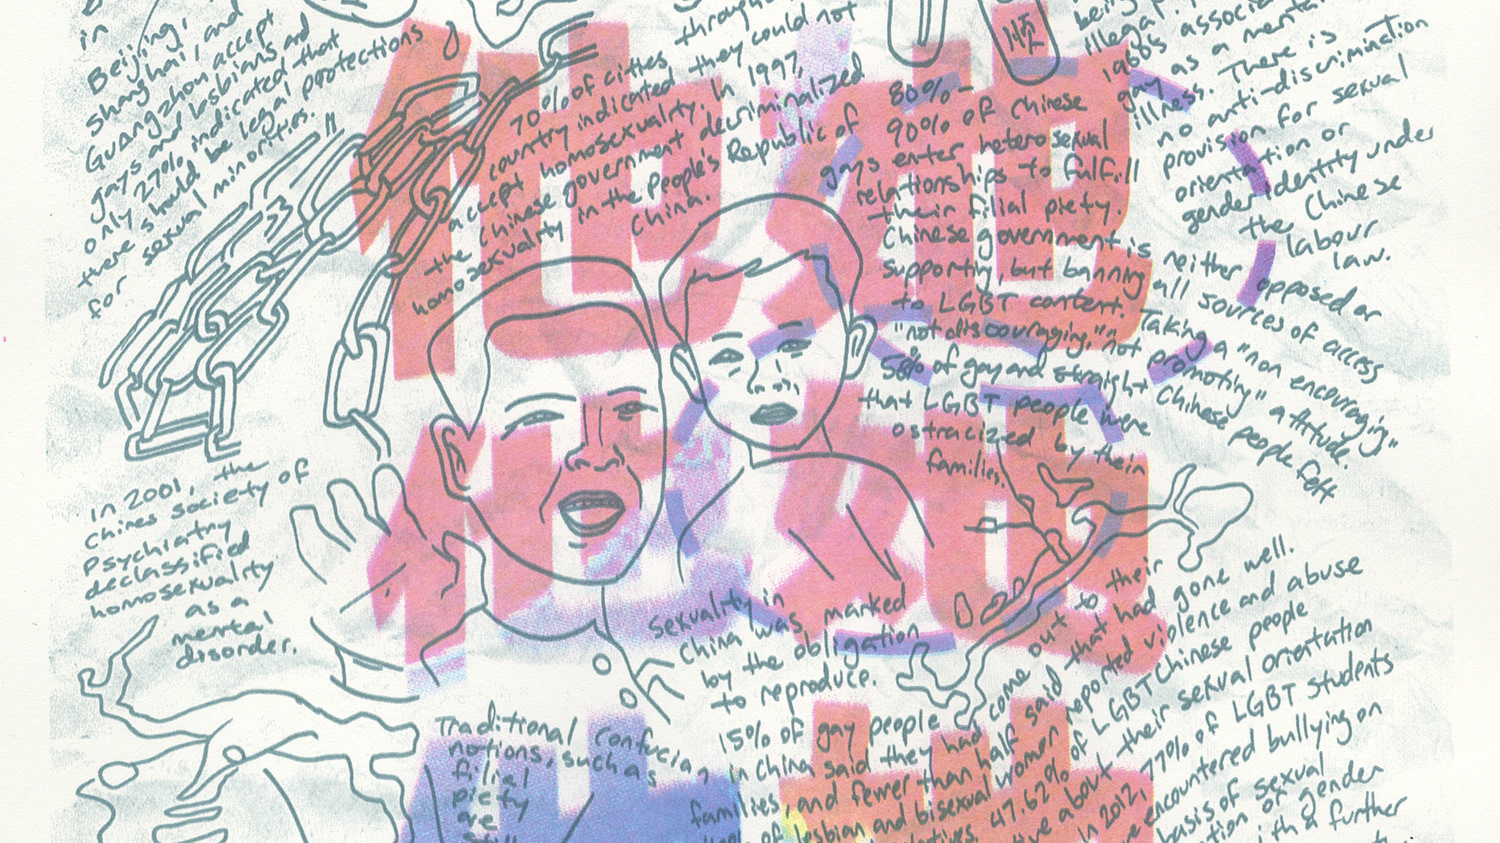 in
Beijing,
Shanghai, and
Guangzhou accept
gays and lesbians and
only 27% indicated that
there should be legal protections
for sexual minorities.
through
70% of cities
country indicated they could not
accept homosexuality. In 1997,
the Chinese government decriminalized
homosexuality in the People's Republic of
China.
80%-
90% of Chinese
gays enter heterosexual
relationships to fulfill
their filial piety.
Chinese government is neither opposed or
supporting, but banning all sources of access
to LGBT content. Taking a "non encouraging"
"not discouraging," "not promoting" attitude.
58% of gay and straight Chinese people felt
that LGBT people were
ostracized by their
families.
being
illegal.
1980s
gay as a mental
illness. There is
no anti-discrimination
provision for sexual
orientation or
gender identity under
the Chinese
labour
law.
順
他 他
他 她
In 2001, the
Chines Society of
Psychiatry
declassified
homosexuality
as a
mental
disorder.
Sexuality in
China was marked
by the obligation
to reproduce.
Traditional Confucian
notions, such as
filial
piety
are
still
15% of gay people
in China said they had come out to their
families, and fewer than half said that had gone well.
of lesbian and bisexual women reported violence and abuse
47.62% of LGBT Chinese people
about their sexual orientation
In 2012, 77% of LGBT students
encountered bullying on
basis of sexual
of gender
with a further